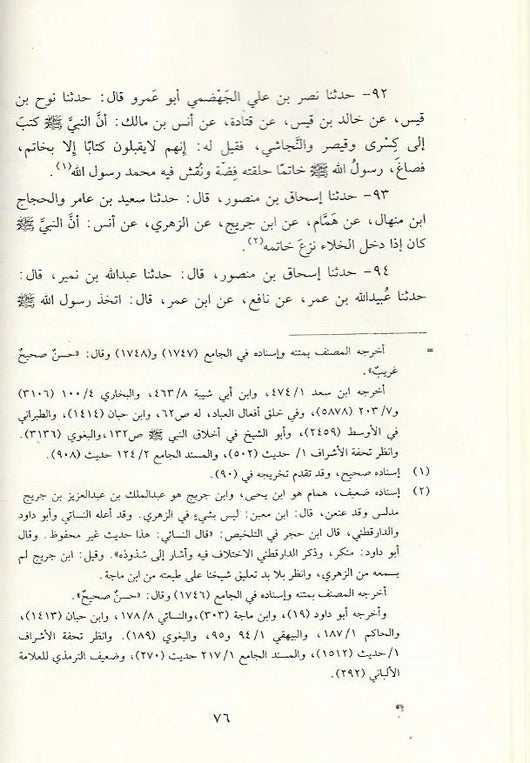 ٩٢- حدثنا نصر بن علي الجَهْضمي أبو عَمرو قال: حدثنا نوح بن
قيس، عن خالد بن قيس، عن قتادة، عن أنس بن مالك: أنَّ النبيَّ ﷺ كتبَ
إلى كِسْرى وقيصر والنَّجاشي، فقيل له: إنهم لايقبلون كتابًا إلا بخاتم،
فصاغَ، رسولُ الله ﷺ خاتمًا حلقته فِضّة ونُقش فيه محمد رسول الله(١).
٩٣- حدثنا إسحاق بن منصور، قال: حدثنا سعيد بن عامر والحجاج
ابن منهال، عن هَمَّام، عن ابن جريج، عن الزهري، عن أنس: أنَّ النبيَّ ﷺ
كان إذا دخل الخلاء نزعَ خاتمه(٢).
٩٤- حدثنا إسحاق بن منصور، قال: حدثنا عبدالله بن نمير، قال:
حدثنا عُبيدالله بن عمر، عن نافع، عن ابن عمر، قال: اتخذ رسول الله ﷺ
= أخرجه المصنف بمتنه وإسناده في الجامع (١٧٤٧) و(١٧٤٨) وقال: «حسنٌ صحيحٌ
غريبٌ».
أخرجه ابن سعد ٤٧٤/١، وابن أبي شيبة ٤٦٣/٨، والبخاري ١٠٠/٤ (٣١٠٦)
و٢٠٣/٧ (٥٨٧٨)، وفي خلق أفعال العباد، له ص٦٢، وابن حبان (١٤١٤)، والطبراني
في الأوسط (٢٤٥٩)، وأبو الشيخ في أخلاق النبي ﷺ ص١٣٢،والبغوي (٣١٣٦).
وانظر تحفة الأشراف ١/ حديث (٥٠٢)، والمسند الجامع ١٣٤/٢ حديث (٩٠٨).
(١) إسناده صحيح، وقد تقدم تخريجه في (٩٠).
(٢) إسناده ضعيف، همام هو ابن يحيى، وابن جريج هو عبدالملك بن عبدالعزيز بن جريج
مدلس وقد عنعن، قال: ابن معين: ليس بشيء في الزهري. وقد أعله النسائي وأبو داود
والدارقطني، قال ابن حجر في التلخيص: «قال النسائي: هذا حديث غير محفوظ. وقال
أبو داود: منكر، وذكر الدارقطني الاختلاف فيه وأشار إلى شذوذه». وقيل: ابن جريج لم
يسمعه من الزهري، وانظر بلا بد تعليق شيخنا على طبعته من ابن ماجة.
أخرجه المصنف بمتنه وإسناده في الجامع (١٧٤٦) وقال: «حسنٌ صحيحٌ».
وأخرجه أبو داود (١٩)، وابن ماجة (٣٠٣)،والنسائي ١٧٨/٨، وابن حبان (١٤١٣)،
والحاكم ١٨٧/١، والبيهقي ٩٤/١ و٩٥، والبغوي (١٨٩). وانظر تحفة الأشراف
١/حديث (١٥١٢)، والمسند الجامع ٢١٧/١ حديث (٢٧٠)، وضعيف الترمذي للعلامة
الألباني (٢٩٢).
٧٦